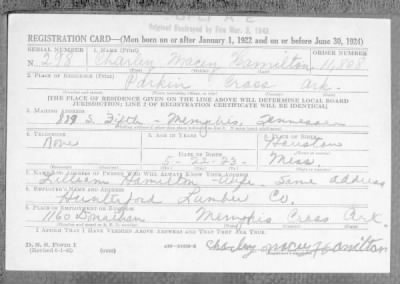 DUPLICATE
Original Destroyed by Fire Mar. 3, 1943
REGISTRATION CARD—(Men born on or after January 1, 1922 and on or before June 30, 1924)
SERIAL NUMBER 1. NAME (Print) ORDER NUMBER
298 Charley Macey Hamilton 11,808
2. PLACE OF RESIDENCE (Print)
Parkin Cross Ark.
[THE PLACE OF RESIDENCE GIVEN ON THE LINE ABOVE WILL DETERMINE LOCAL BOARD
JURISDICTION; LINE 2 OF REGISTRATION CERTIFICATE WILL BE IDENTICAL]
3. MAILING ADDRESS
S. Fifth - Memphis, Tennessee
4. TELEPHONE 5. AGE IN YEARS 6. PLACE OF BIRTH
None Houston
DATE OF BIRTH
5-22-23 Miss.
7. NAME AND ADDRESS OF PERSON WHO WILL ALWAYS KNOW YOUR ADDRESS
Lillian Hamilton - Wife - Same address
8. EMPLOYER'S NAME AND ADDRESS
Lumber Co.
9. PLACE OF EMPLOYMENT OR BUSINESS
1160 Memphis Cross Ark.
I AFFIRM THAT I HAVE VERIFIED ABOVE ANSWERS AND THAT THEY ARE TRUE.
D. S. S. Form 1
(Revised 6-1-42) (over) Charley Macey Hamilton